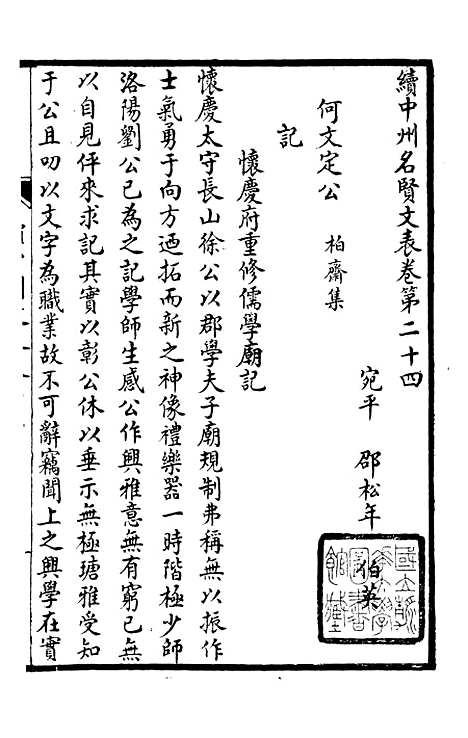 續中州名賢文表卷第二十四
宛平　邵松年　伯英
何文定公　柏齋集
記
懷慶府重修儒學廟記
懷慶太守長山徐公以郡學夫子廟規制弗稱無以振作
士氣勇于向方迺拓而新之神像禮樂器一時階極少師
洛陽劉公已為之記學師生感公作興雅意無有窮已無
以自見伻來求記其實以彰公休以垂示無極瑭雅受知
于公且叨以文字為職業故不可辭竊聞上之興學在實